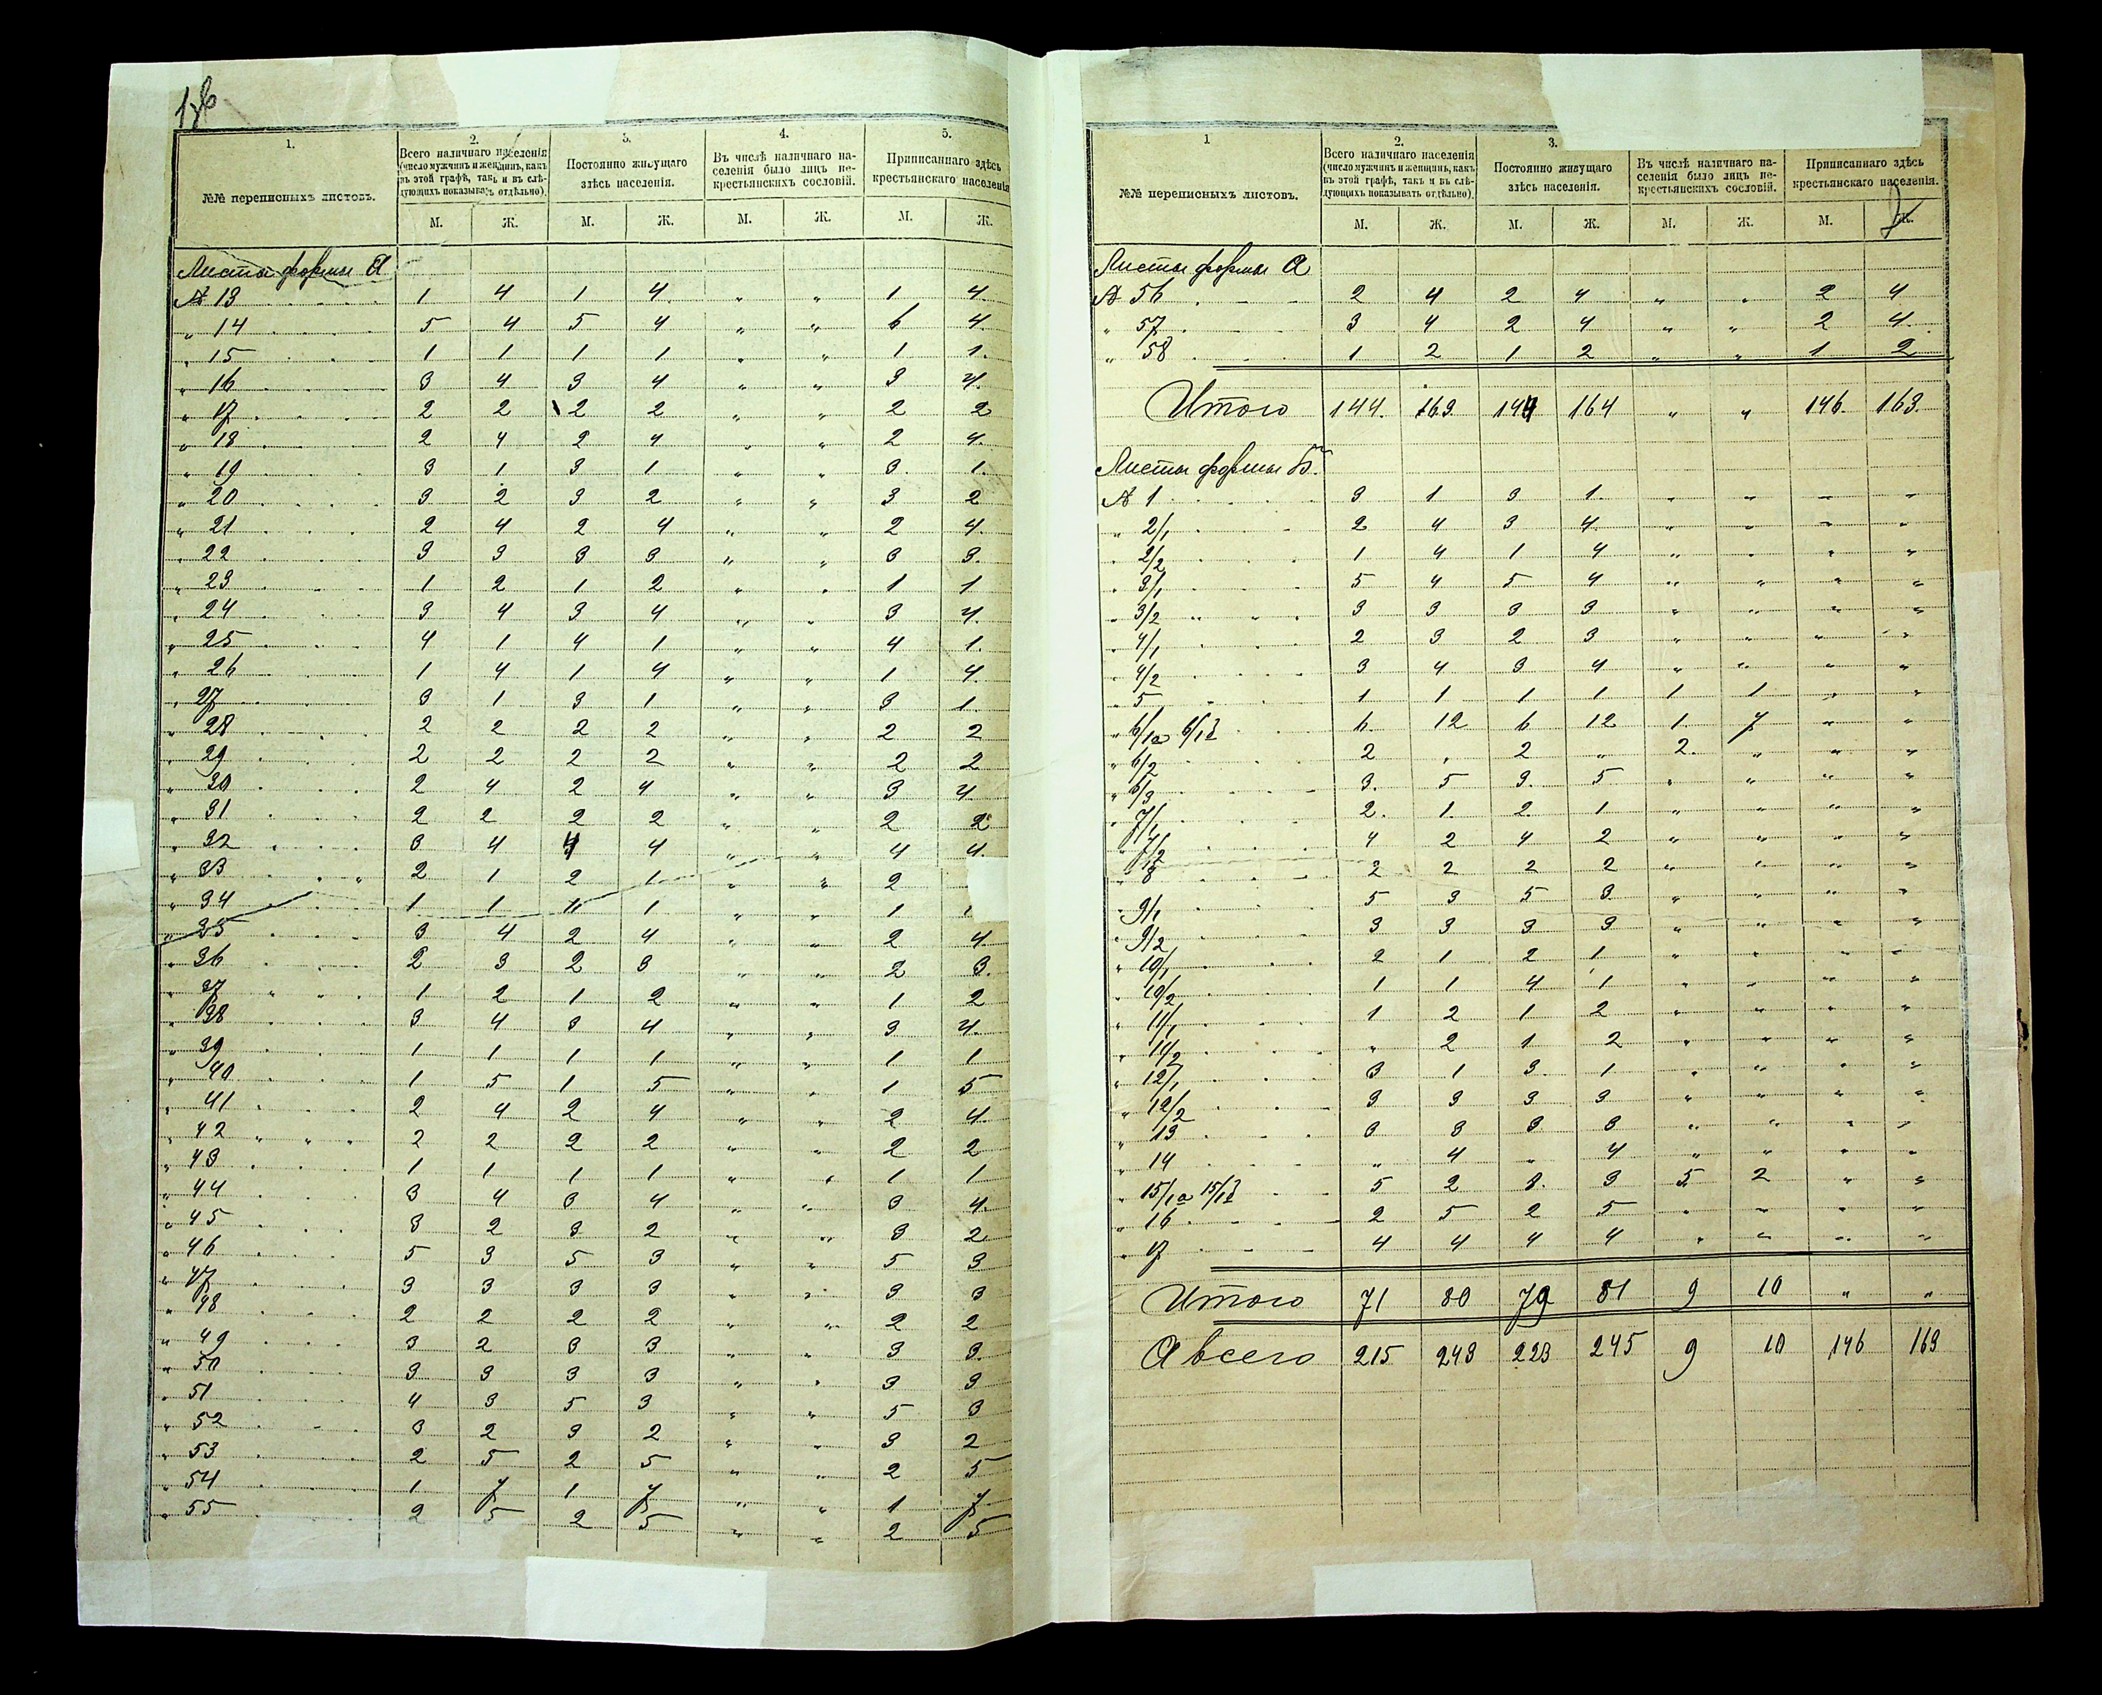 1.
2.
3.
4.
5.
№№ переписныхъ листовъ.
Всего наличнаго населенія (число мужчинъ и женщинъ, какъ въ этой графѣ, такъ и въ слѣдующихъ показывать отдѣльно).
Постоянно живущаго здѣсь населенія.
Въ числѣ наличнаго населенія было лицъ некрестьянскихъ сословій.
Приписаннаго здѣсь крестьянскаго населенія
М. Ж. М. Ж. М. Ж. М. Ж.
Листы формы А
№ 13 1 4 1 4 „ „ 1 4
„ 14 5 4 5 4 „ „ 6 4
„ 15 1 1 1 1 „ „ 1 1
„ 16 3 4 3 4 „ „ 3 4
„ 17 2 2 2 2 „ „ 2 2
„ 18 2 4 2 4 „ „ 2 4
„ 19 3 1 3 1 „ „ 3 1
„ 20 3 2 3 2 „ „ 3 2
„ 21 2 4 2 4 „ „ 2 4
„ 22 3 3 3 3 „ „ 3 3
„ 23 1 2 1 2 „ „ 1 1
„ 24 3 4 3 4 „ „ 3 4
„ 25 4 1 4 1 „ „ 4 1
„ 26 1 4 1 4 „ „ 1 4
„ 27 3 1 3 1 „ „ 3 1
„ 28 2 2 2 2 „ „ 2 2
„ 29 2 2 2 2 „ „ 2 2
„ 30 2 4 2 4 „ „ 3 4
„ 31 2 2 2 2 „ „ 2 2
„ 32 3 4 4 4 „ „ 4 4
„ 33 2 1 2 1 „ „ 2
„ 34 1 1 1 1 „ „ 1 1
„ 35 3 4 2 4 „ „ 2 4
„ 36 2 3 2 3 „ „ 2 3
„ 37 1 2 1 2 „ „ 1 2
„ 38 3 4 3 4 „ „ 3 4
„ 39 1 1 1 1 „ „ 1 1
„ 40 1 5 1 5 „ „ 1 5
„ 41 2 4 2 4 „ „ 2 4
„ 42 2 2 2 2 „ „ 2 2
„ 43 1 1 1 1 „ „ 1 1
„ 44 3 4 3 4 „ „ 3 4
„ 45 3 2 3 2 „ „ 3 2
„ 46 5 3 5 3 „ „ 5 3
„ 47 3 3 3 3 „ „ 3 3
„ 48 2 2 2 2 „ „ 2 2
„ 49 3 2 3 3 „ „ 3 3
„ 50 3 3 3 3 „ „ 3 3
„ 51 4 3 5 3 „ „ 5 3
„ 52 3 2 3 2 „ „ 3 2
„ 53 2 5 2 5 „ „ 2 5
„ 54 1 7 1 7 „ „ 1 7
„ 55 2 5 2 5 „ „ 2 5
1
2.
3.
№№ переписныхъ листовъ.
Всего наличнаго населенія (число мужчинъ и женщинъ, какъ въ этой графѣ, такъ и въ слѣдующихъ показывать отдѣльно).
Постоянно живущаго здѣсь населенія.
Въ числѣ наличнаго населенія было лицъ некрестьянскихъ сословій.
Приписаннаго здѣсь крестьянскаго населенія.
М. Ж. М. Ж. М. Ж. М. Ж.
Листы формы А
№ 56 2 4 2 4 „ „ 2 4
„ 57 3 4 2 4 „ „ 2 4
„ 58 1 2 1 2 „ „ 1 2
Итого 144. 163 144 164 „ „ 146. 163.
Листы формы Б.
№ 1 3 1 3 1 „ „ „ „
„ 2/1 2 4 3 4 „ „ „ „
„ 2/2 1 4 1 4 „ „ „ „
„ 3/1 5 4 5 4 „ „ „ „
„ 3/2 3 3 3 3 „ „ „ „
„ 4/1 2 3 2 3 „ „ „ „
„ 4/2 3 4 3 4 „ „ „ „
„ 5 1 1 1 1 1 1 „ „
„ 6/1а 6/1б 6 12 6 12 1 7 „ „
„ 6/2 2 „ 2 „ 2 „ „ „
„ 6/3 3 5 3 5 „ „ „ „
„ 7/1 2 1 2 1 „ „ „ „
„ 7/2 4 2 4 2 „ „ „ „
„ 8 2 2 2 2 „ „ „ „
„ 9/1 5 3 5 3 „ „ „ „
„ 9/2 3 3 3 3 „ „ „ „
„ 10/1 2 1 2 1 „ „ „ „
„ 10/2 1 1 4 1 „ „ „ „
„ 11/1 1 2 1 2 „ „ „ „
„ 11/2 „ 2 1 2 „ „ „ „
„ 12/1 3 1 3 1 „ „ „ „
„ 12/2 3 3 3 3 „ „ „ „
„ 13 3 3 3 3 „ „ „ „
„ 14 „ 4 „ 4 „ „ „ „
„ 15/1а 15/1б 5 2 8 3 5 2 „ „
„ 16 2 5 2 5 „ „ „ „
„ 17 4 4 4 4 „ „ „ „
Итого 71 80 79 81 9 10 „ „
А всего 215 243 223 245 9 10 146 163